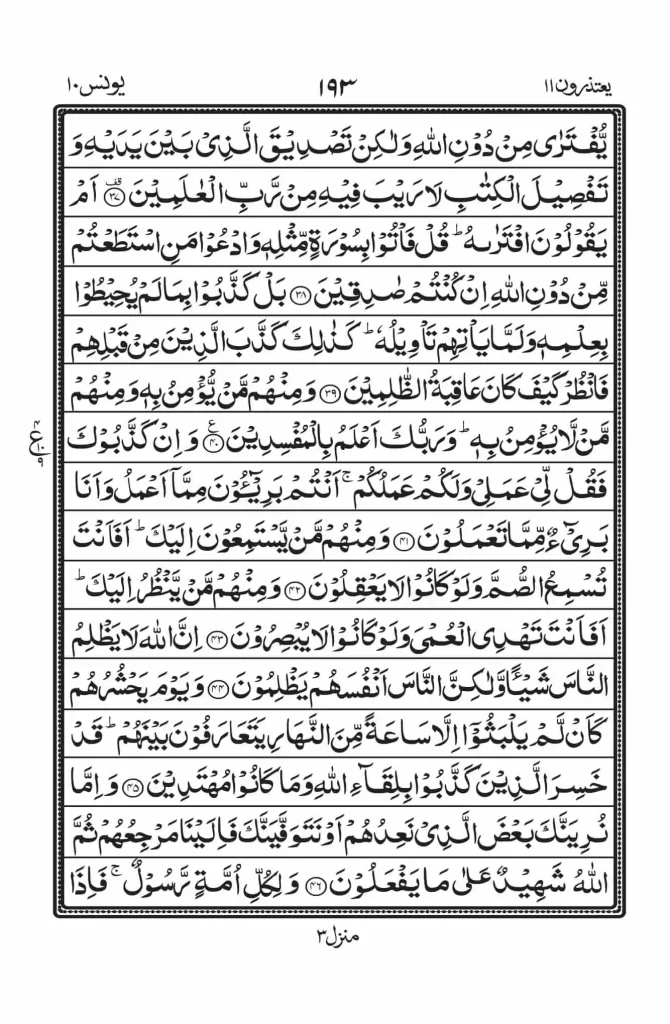 یعتذرون۱۱ ۱۹۳ یونس۱۰
یُّفْتَرٰى مِنْ دُوْنِ اللّٰهِ وَلٰكِنْ تَصْدِیْقَ الَّذِیْ بَیْنَ یَدَیْهِ وَ
تَفْصِیْلَ الْكِتٰبِ لَا رَیْبَ فِیْهِ مِنْ رَّبِّ الْعٰلَمِیْنَ ۟ۙ۳۷ اَمْ
یَقُوْلُوْنَ افْتَرٰىهُ ؕ قُلْ فَاْتُوْا بِسُوْرَةٍ مِّثْلِهٖ وَادْعُوْا مَنِ اسْتَطَعْتُمْ
مِّنْ دُوْنِ اللّٰهِ اِنْ كُنْتُمْ صٰدِقِیْنَ ۳۸ بَلْ كَذَّبُوْا بِمَا لَمْ یُحِیْطُوْا
بِعِلْمِهٖ وَلَمَّا یَاْتِهِمْ تَاْوِیْلُهٗ ؕ كَذٰلِكَ كَذَّبَ الَّذِیْنَ مِنْ قَبْلِهِمْ
فَانْظُرْ كَیْفَ كَانَ عَاقِبَةُ الظّٰلِمِیْنَ ۳۹ وَمِنْهُمْ مَّنْ یُّؤْمِنُ بِهٖ وَمِنْهُمْ
مَّنْ لَّا یُؤْمِنُ بِهٖ ؕ وَرَبُّكَ اَعْلَمُ بِالْمُفْسِدِیْنَ ۴۰ ع وَاِنْ كَذَّبُوْكَ
فَقُلْ لِّیْ عَمَلِیْ وَلَكُمْ عَمَلُكُمْ ۚ اَنْتُمْ بَرِیْٓـُٔوْنَ مِمَّاۤ اَعْمَلُ وَاَنَا
بَرِیْٓءٌ مِّمَّا تَعْمَلُوْنَ ۴۱ وَمِنْهُمْ مَّنْ یَّسْتَمِعُوْنَ اِلَیْكَ ؕ اَفَاَنْتَ
تُسْمِعُ الصُّمَّ وَلَوْ كَانُوْا لَا یَعْقِلُوْنَ ۴۲ وَمِنْهُمْ مَّنْ یَّنْظُرُ اِلَیْكَ ؕ
اَفَاَنْتَ تَهْدِی الْعُمْیَ وَلَوْ كَانُوْا لَا یُبْصِرُوْنَ ۴۳ اِنَّ اللّٰهَ لَا یَظْلِمُ
النَّاسَ شَیْـًٔا وَّلٰكِنَّ النَّاسَ اَنْفُسَهُمْ یَظْلِمُوْنَ ۴۴ وَیَوْمَ یَحْشُرُهُمْ
كَاَنْ لَّمْ یَلْبَثُوْۤا اِلَّا سَاعَةً مِّنَ النَّهَارِ یَتَعَارَفُوْنَ بَیْنَهُمْ ؕ قَدْ
خَسِرَ الَّذِیْنَ كَذَّبُوْا بِلِقَآءِ اللّٰهِ وَمَا كَانُوْا مُهْتَدِیْنَ ۴۵ وَاِمَّا
نُرِیَنَّكَ بَعْضَ الَّذِیْ نَعِدُهُمْ اَوْ نَتَوَفَّیَنَّكَ فَاِلَیْنَا مَرْجِعُهُمْ ثُمَّ
اللّٰهُ شَهِیْدٌ عَلٰى مَا یَفْعَلُوْنَ ۴۶ وَلِكُلِّ اُمَّةٍ رَّسُوْلٌ ۚ فَاِذَا
منزل۳